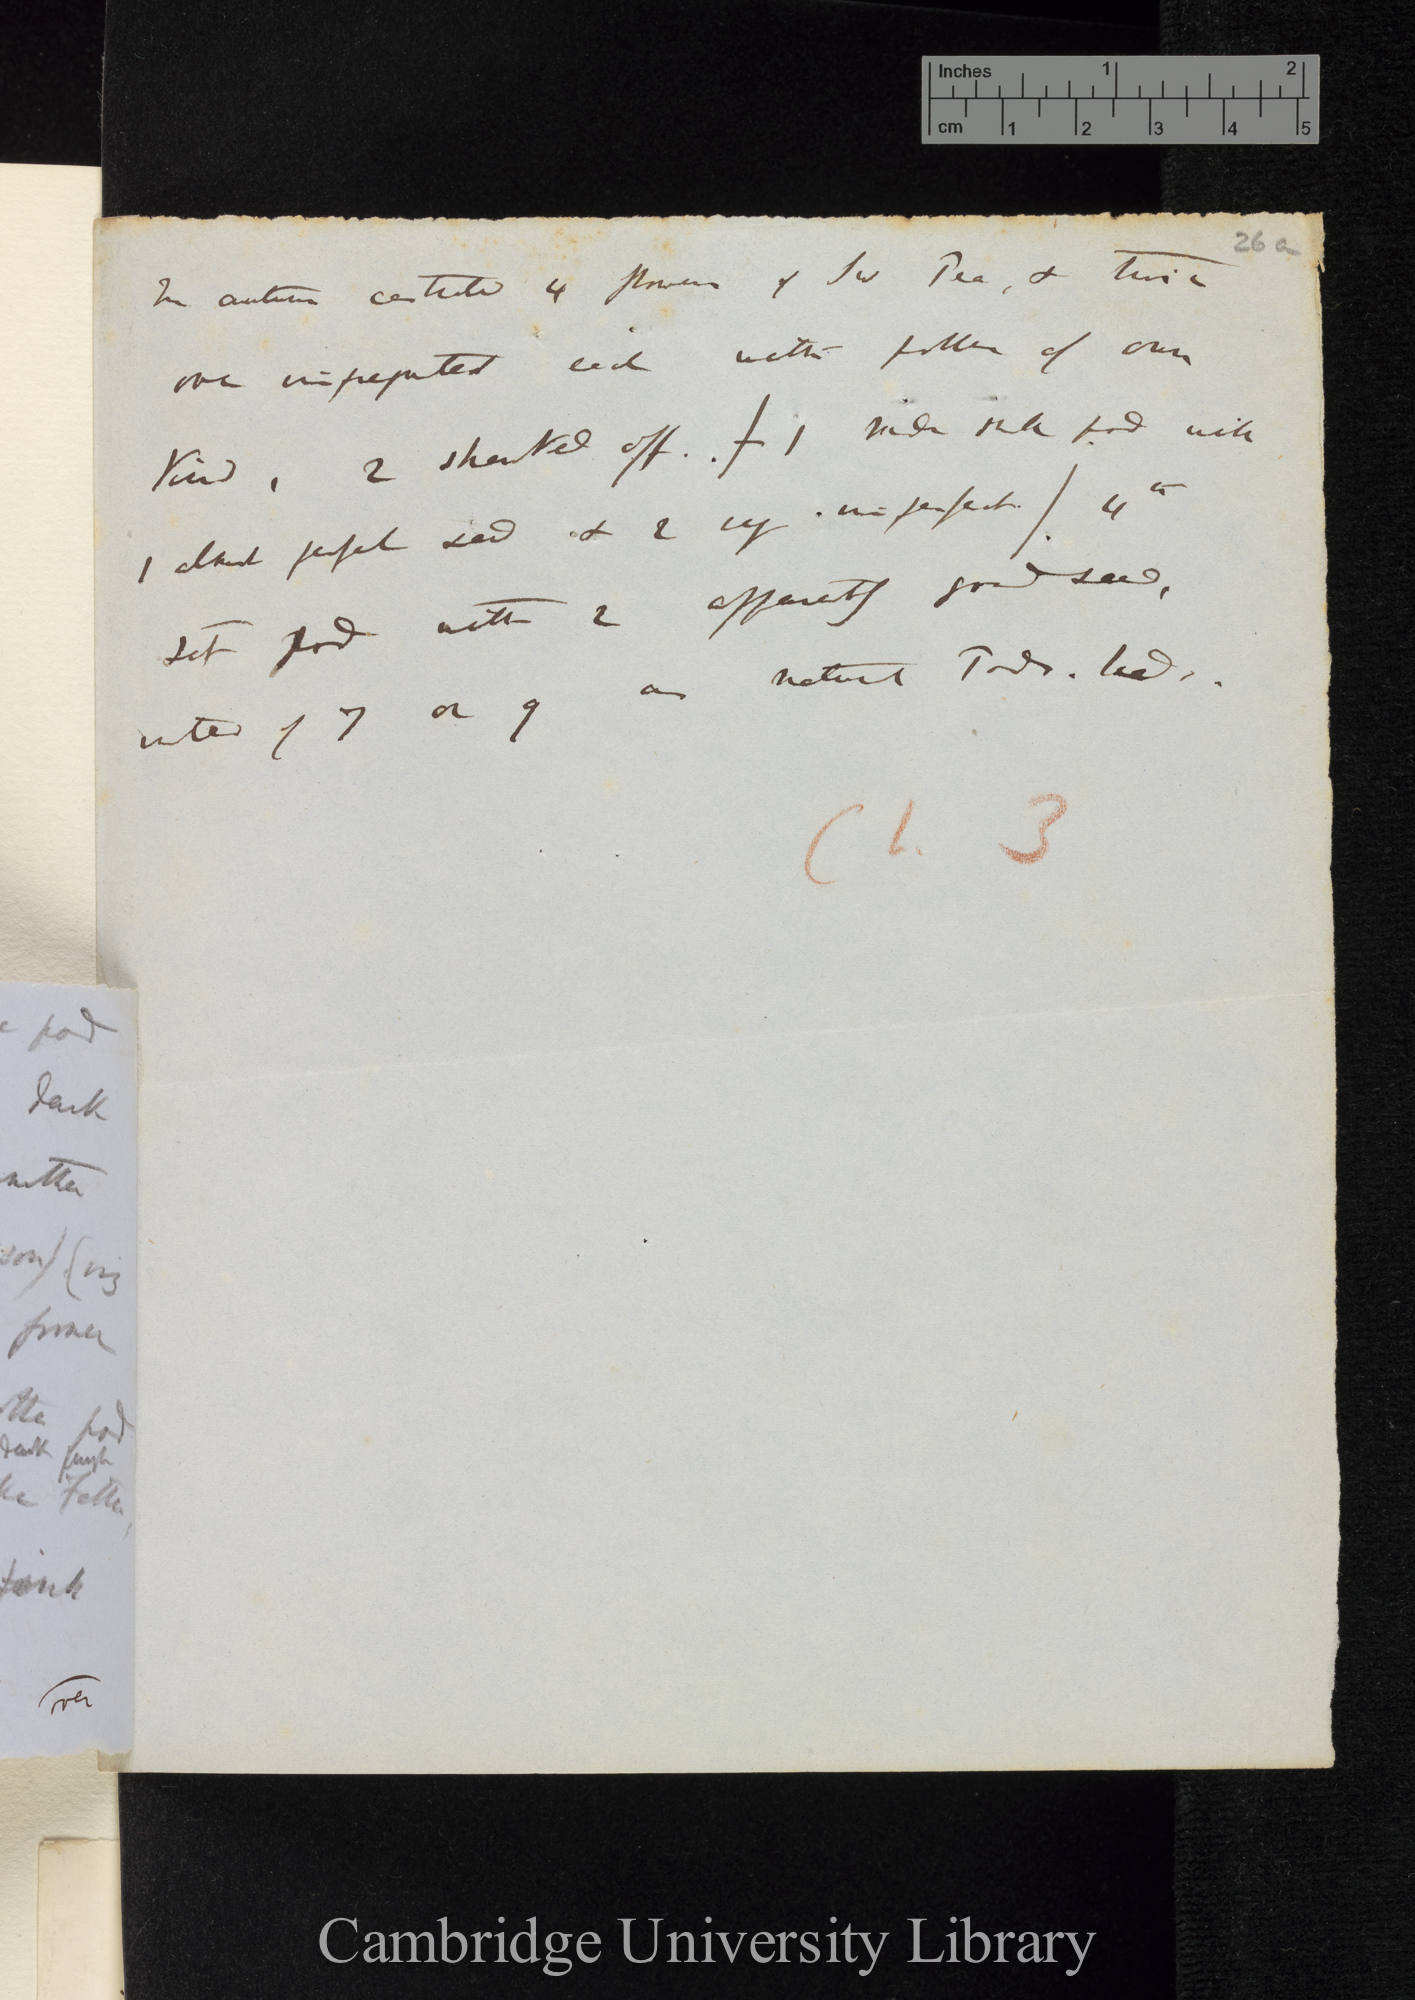 Inches 1 2
cm 1 2 3 4 5
26 a
In autumn castrated 4 flowers of Sw Pea, & twice
over impregnated each with pollen of own
kind, 2 shanked off. . / 1 made pod with
1 almost perfect seed & 2 very imperfect. / 4th
set pod with 2 apparently good seed,
instead of 7 or 9 as natural Pods. had.
Ch. 3
pod
dark
former
pod
dark purple
pink
over
Cambridge University Library